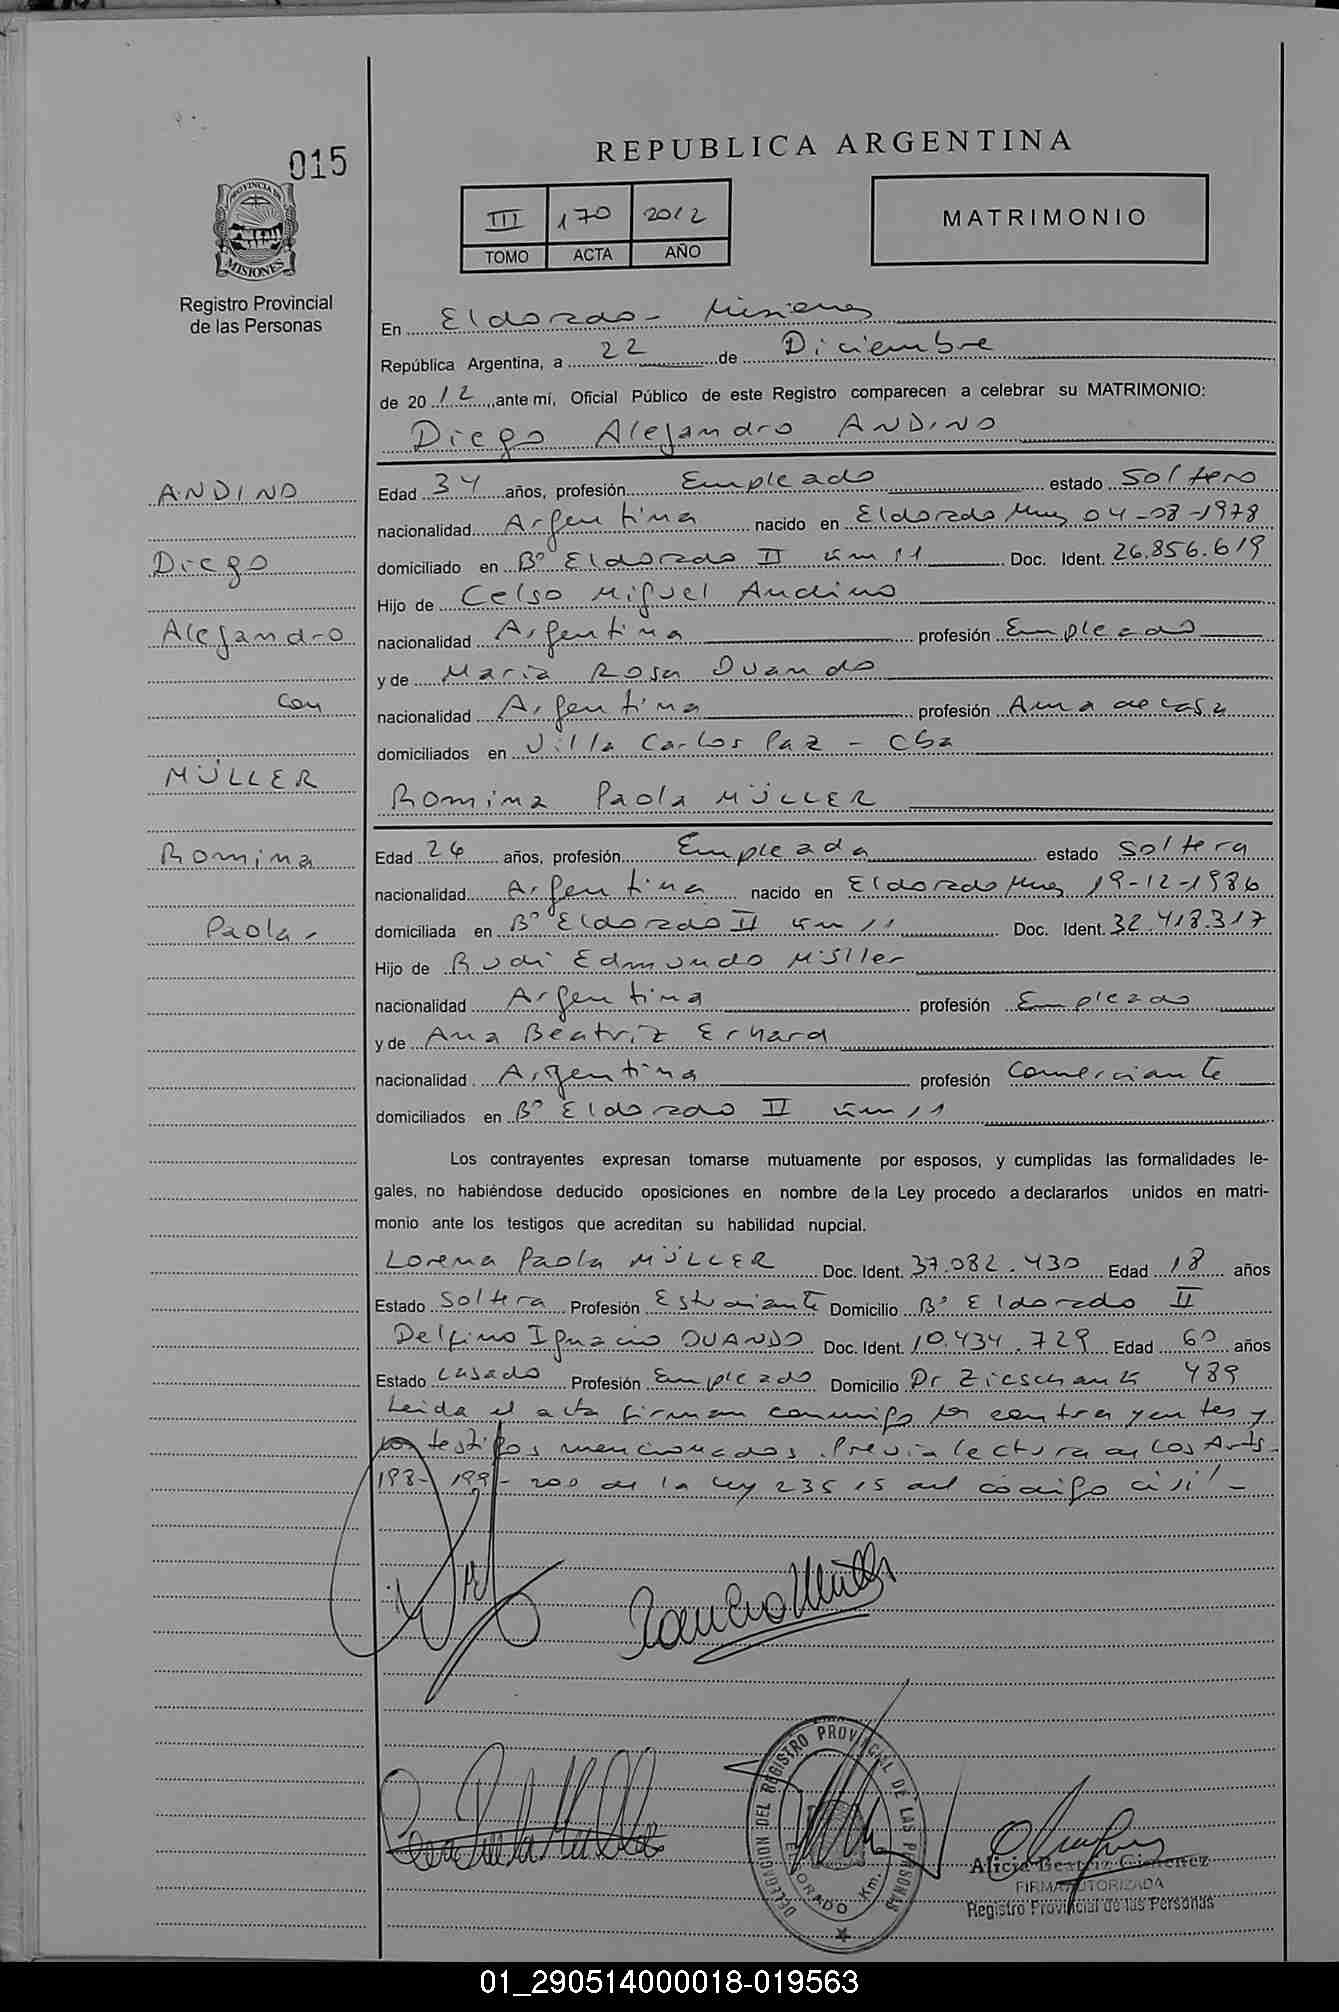 015
REPUBLICA ARGENTINA
PROVINCIA DE
MISIONES
Registro Provincial
de las Personas
III 170 2012
TOMO ACTA AÑO
MATRIMONIO
En Eldorado - Misiones
República Argentina, a 22 de Diciembre
de 2012, ante mí, Oficial Público de este Registro comparecen a celebrar su MATRIMONIO:
Diego Alejandro ANDINO
ANDINO
Diego
Alejandro
con
MÜLLER
Romina
Paola
Edad 34 años, profesión Empleado estado Soltero
nacionalidad Argentina nacido en Eldorado Mnes 04-08-1978
domiciliado en Bº Eldorado II km 11 Doc. Ident. 26.856.619
Hijo de Celso Miguel Andino
nacionalidad Argentina profesión Empleado
y de Maria Rosa Ouando
nacionalidad Argentina profesión Ama de casa
domiciliados en Villa Carlos Paz - Cba
Romina Paola MÜLLER
Edad 26 años, profesión Empleada estado Soltera
nacionalidad Argentina nacido en Eldorado Mnes 19-12-1986
domiciliada en Bº Eldorado II km 11 Doc. Ident. 32.418.317
Hijo de Rudi Edmundo Müller
nacionalidad Argentina profesión Empleado
y de Ana Beatriz Erhard
nacionalidad Argentina profesión Comerciante
domiciliados en Bº Eldorado II km 11
Los contrayentes expresan tomarse mutuamente por esposos, y cumplidas las formalidades le-
gales, no habiéndose deducido oposiciones en nombre de la Ley procedo a declararlos unidos en matri-
monio ante los testigos que acreditan su habilidad nupcial.
Lorena Paola MÜLLER Doc. Ident. 37.082.430 Edad 18 años
Estado Soltera Profesión Estudiante Domicilio Bº Eldorado II
Delfino Ignacio OUANDO Doc. Ident. 10.434.729 Edad 60 años
Estado Casado Profesión Empleado Domicilio Dr Zieschank 489
Leida el acta firman conmigo los contrayentes y
los testigos mencionados. Previa lectura de los Arts.
198-199-200 de la Ley 23515 del código civil -
DELEGACION DEL REGISTRO PROVINCIAL DE LAS PERSONAS
ELDORADO Km.
Alicia Beatriz Gimenez
FIRMA AUTORIZADA
Registro Provincial de las Personas
01_290514000018-019563